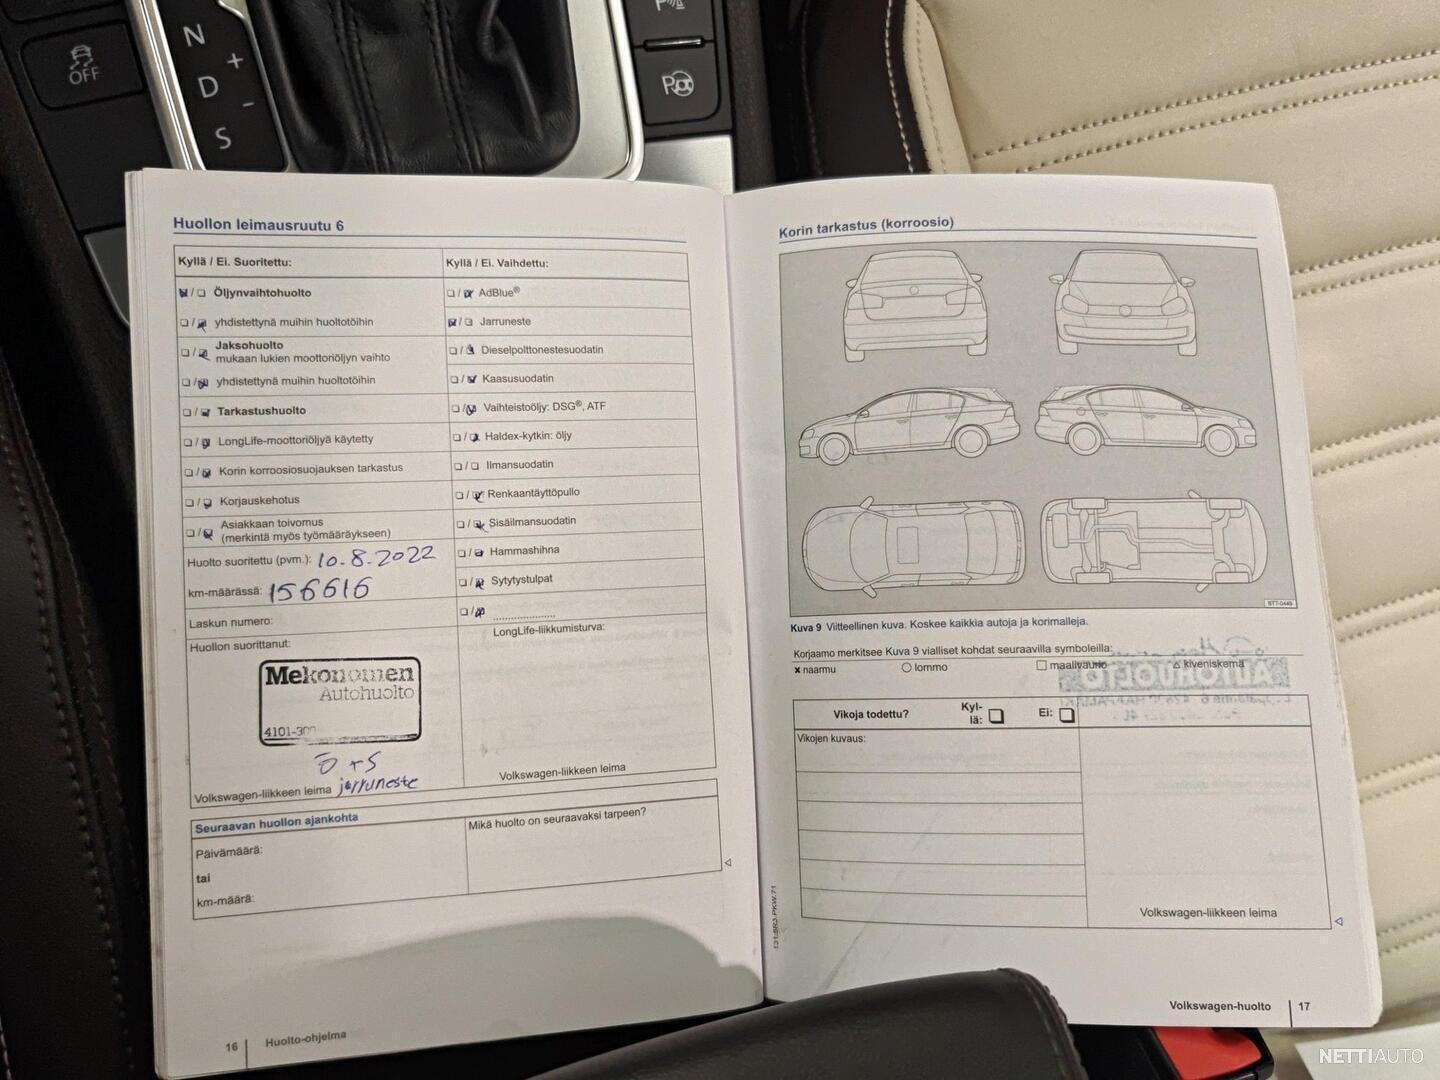 N
D
+
-
S
OFF
Huollon leimausruutu 6
Kyllä / Ei. Suoritettu:
Öljynvaihtohuolto
yhdistettynä muihin huoltotöihin
Jaksohuolto
mukaan lukien moottoriöljyn vaihto
yhdistettynä muihin huoltotöihin
Tarkastushuolto
LongLife-moottoriöljyä käytetty
Korin korroosiosuojauksen tarkastus
Korjauskehotus
Asiakkaan toivomus
(merkintä myös työmääräykseen)
Huolto suoritettu (pvm.): 10.8.2022
km-määrässä: 156616
Laskun numero:
Huollon suorittanut:
Mekonomen
Autohuolto
Ö+S
jarruneste
Volkswagen-liikkeen leima
Kyllä / Ei. Vaihdettu:
AdBlue®
Jarruneste
Dieselpolttonestesuodatin
Kaasusuodatin
Vaihteistoöljy: DSG®, ATF
Haldex-kytkin: öljy
Ilmansuodatin
Renkaantäyttöpullo
Sisäilmansuodatin
Hammashihna
Sytytystulpat
LongLife-liikkumisturva:
Volkswagen-liikkeen leima
Seuraavan huollon ajankohta
Päivämäärä:
tai
km-määrä:
Mikä huolto on seuraavaksi tarpeen?
16 Huolto-ohjelma
Korin tarkastus (korroosio)
BT7-0449
Kuva 9 Viitteellinen kuva. Koskee kaikkia autoja ja korimalleja.
Korjaamo merkitsee Kuva 9 vialliset kohdat seuraavilla symboleilla:
x naarmu lommo maalivaurio kiveniskemä
Vikoja todettu?
Kyl-
lä:
Ei:
Vikojen kuvaus:
Volkswagen-liikkeen leima
131.5R3.PKW.71
Volkswagen-huolto 17
NETTIAUTO